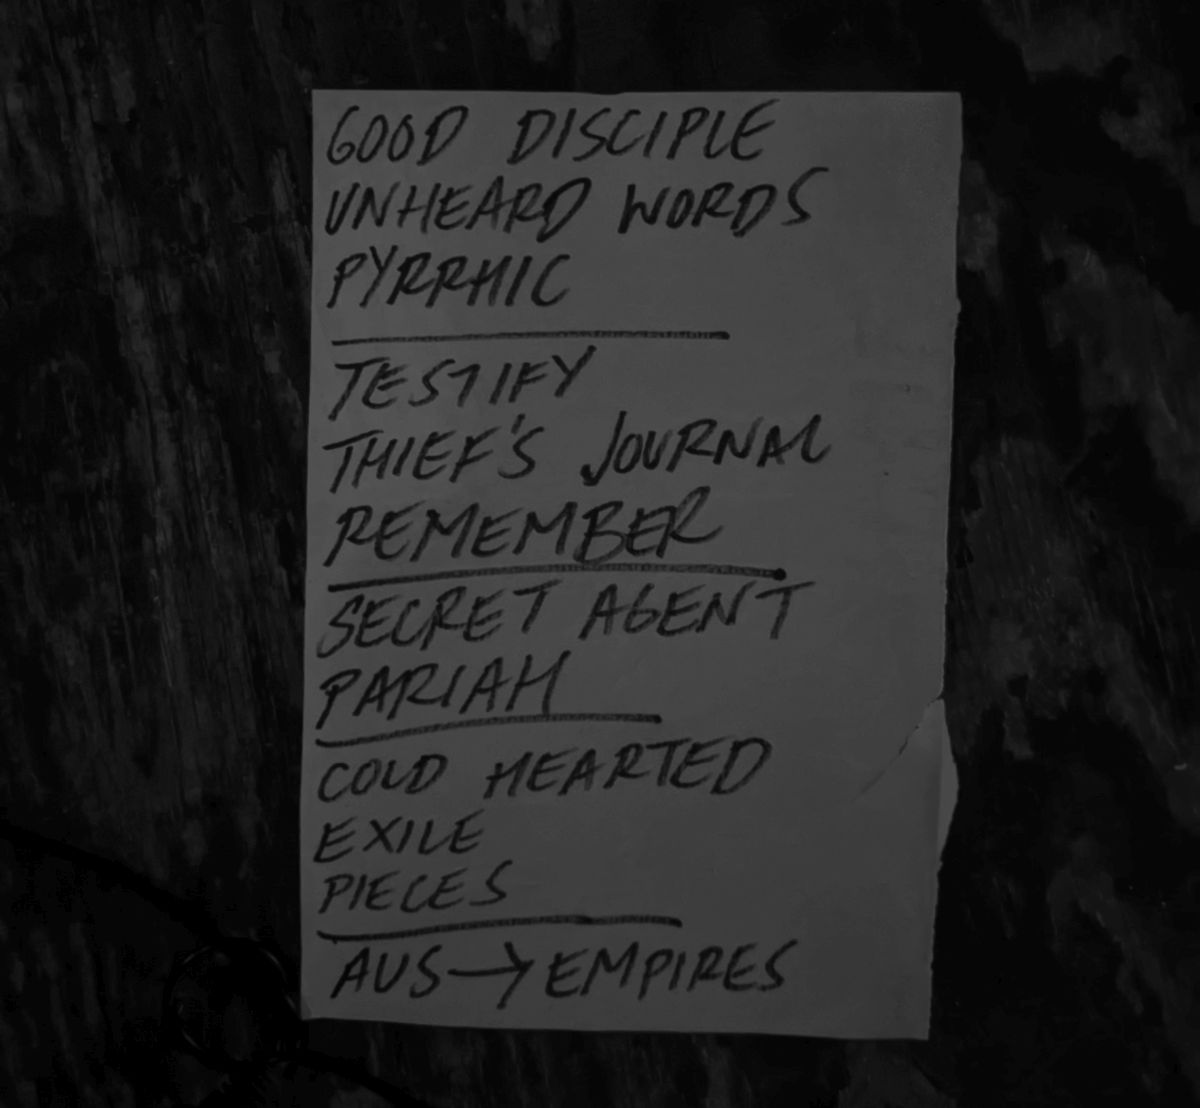 GOOD DISCIPLE
UNHEARD WORDS
PYRRHIC
TESTIFY
THIEF'S JOURNAL
REMEMBER
SECRET AGENT
PARIAH
COLD HEARTED
EXILE
PIECES
AUS → EMPIRES